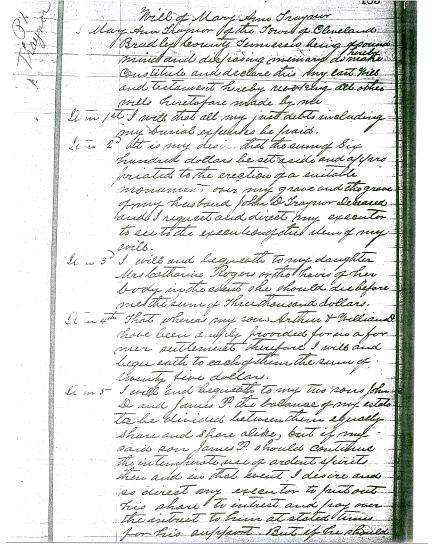 Will of Mary Ann Traynor
I Mary Ann Traynor of the Town of Cleveland
Bradley County Tennessee being of sound
mind and disposing memory do make
hereby
Constitute and declare this my last Will
and testament hereby revoking all other
wills heretofore made by me
Item 1st I will that all my just debts including
my burial expenses be paid.
Item 2d It is my desire that the sum of Six
hundred dollars be set aside and appro
priated to the erection of a suitable
monument over my grave and the grave
of my husband John D Traynor Deceased
and I request and direct my executor
to see to the execution of this item of my
will.
Item 3d I will and bequeath to my daughter
Mrs Catharine Rogers or the heirs of her
body in the event she should die before
me the sum of Three thousand dollars.
Item 4th That whereas my sons Arthur & William
have been amply provided for in a for
mer settlement therefore I will and
bequeath to each of them the sum of
twenty five dollars.
Item 5 I will and bequeath to my two sons John
D and James P. the balance of my estate
to be divided between them equally
share and share alike, but if my
said son James P. should continue
the intemperate use of ardent spirits
then and in that event I desire and
so direct my executor to put out
his share to interest and pay over
the interest to him at stated times
for his support. But if he should